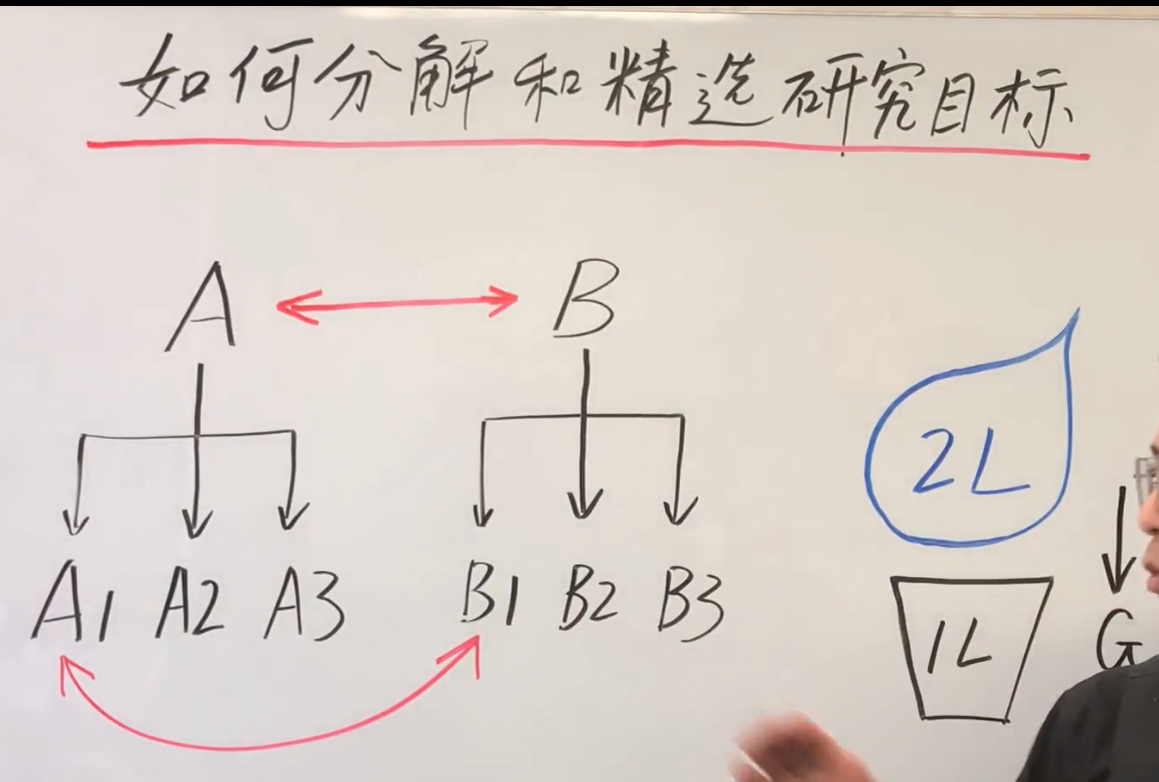 如何分解和精选研究目标
A B
2L
A1 A2 A3 B1 B2 B3
1L
G